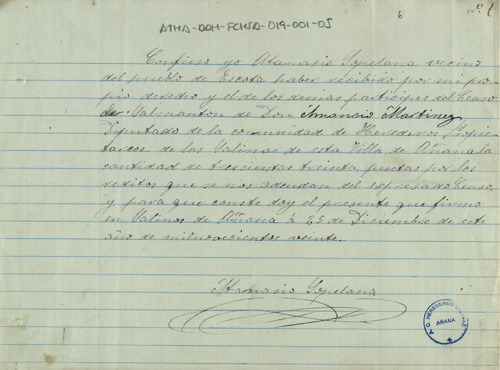 ATHA-DAH-FCHSA-019-001-05
6
nº 1
Confieso yo Atanasio Sopelana vecino
del pueblo de Escota haber recibido por mi pro
pio derecho y el de los demas participes del Censo
de Salmanton de Don Amancio Martinez
Diputado de la comunidad de Herederos Propie
tarios de las Salinas de esta Villa de Añana la
cantidad de trescientas treinta pesetas por los
reditos que se nos adeudan del expresado Censo,
y para que conste doy el presente que firmo
en Salinas de Añana á 25 de Diciembre de este
año de mil novecientos veinte.
Atanasio Sopelana
A.C. HEREDEROS
AÑANA